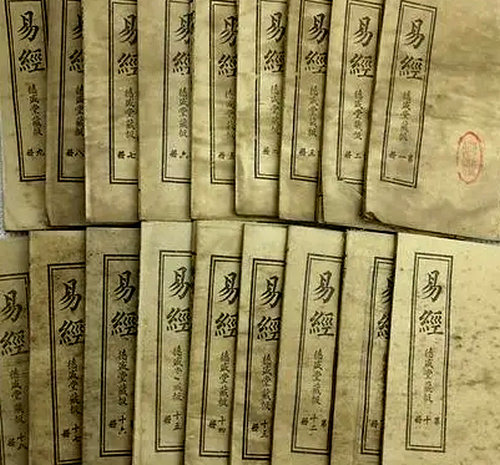 易經
德盛堂藏板
第一冊
易經
德盛堂藏板
二冊
易經
德盛堂藏板
三冊
易經
德盛堂藏板
冊
易經
德盛堂藏板
五冊
易經
德盛堂藏板
六冊
易經
德盛堂藏板
七冊
易經
德盛堂藏板
八冊
易經
德盛堂藏板
九冊
易經
德盛堂藏板
第十冊
易經
德盛堂藏板
易經
德盛堂藏板
第十二
易經
德盛堂藏板
十三
易經
德盛堂藏板
十四
易經
德盛堂藏板
十五
易經
德盛堂藏板
十六
易經
德盛堂藏板
十七
易經
德盛堂藏板
十八